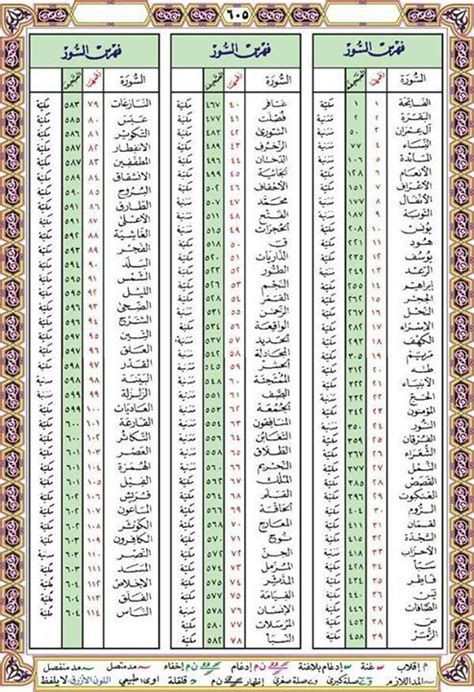 ٦٠٥
فهرس السور
السورة رقمها الصفحة
الفاتحة ١ ١ مكية
البقرة ٢ ٢ مدنية
آل عمران ٣ ٥٠ مدنية
النساء ٤ ٧٧ مدنية
المائدة ٥ ١٠٦ مدنية
الأنعام ٦ ١٢٨ مكية
الأعراف ٧ ١٥١ مكية
الأنفال ٨ ١٧٧ مدنية
التوبة ٩ ١٨٧ مدنية
يونس ١٠ ٢٠٨ مكية
هود ١١ ٢٢١ مكية
يوسف ١٢ ٢٣٥ مكية
الرعد ١٣ ٢٤٩ مدنية
إبراهيم ١٤ ٢٥٥ مكية
الحجر ١٥ ٢٦٢ مكية
النحل ١٦ ٢٦٧ مكية
الإسراء ١٧ ٢٨٢ مكية
الكهف ١٨ ٢٩٣ مكية
مريم ١٩ ٣٠٥ مكية
طه ٢٠ ٣١٢ مكية
الأنبياء ٢١ ٣٢٢ مكية
الحج ٢٢ ٣٣٢ مدنية
المؤمنون ٢٣ ٣٤٢ مكية
النور ٢٤ ٣٥٠ مدنية
الفرقان ٢٥ ٣٥٩ مكية
الشعراء ٢٦ ٣٦٧ مكية
النمل ٢٧ ٣٧٧ مكية
القصص ٢٨ ٣٨٥ مكية
العنكبوت ٢٩ ٣٩٦ مكية
الروم ٣٠ ٤٠٤ مكية
لقمان ٣١ ٤١١ مكية
السجدة ٣٢ ٤١٥ مكية
الأحزاب ٣٣ ٤١٨ مدنية
سبأ ٣٤ ٤٢٨ مكية
فاطر ٣٥ ٤٣٤ مكية
يس ٣٦ ٤٤٠ مكية
الصافات ٣٧ ٤٤٦ مكية
ص ٣٨ ٤٥٣ مكية
الزمر ٣٩ ٤٥٨ مكية
فهرس السور
السورة رقمها الصفحة
غافر ٤٠ ٤٦٧ مكية
فصلت ٤١ ٤٧٧ مكية
الشورى ٤٢ ٤٨٣ مكية
الزخرف ٤٣ ٤٨٩ مكية
الدخان ٤٤ ٤٩٦ مكية
الجاثية ٤٥ ٤٩٩ مكية
الأحقاف ٤٦ ٥٠٢ مكية
محمد ٤٧ ٥٠٧ مدنية
الفتح ٤٨ ٥١١ مدنية
الحجرات ٤٩ ٥١٥ مدنية
ق ٥٠ ٥١٨ مكية
الذاريات ٥١ ٥٢٠ مكية
الطور ٥٢ ٥٢٣ مكية
النجم ٥٣ ٥٢٦ مكية
القمر ٥٤ ٥٢٨ مكية
الرحمن ٥٥ ٥٣١ مدنية
الواقعة ٥٦ ٥٣٤ مكية
الحديد ٥٧ ٥٣٧ مدنية
المجادلة ٥٨ ٥٤٢ مدنية
الحشر ٥٩ ٥٤٥ مدنية
الممتحنة ٦٠ ٥٤٩ مدنية
الصف ٦١ ٥٥١ مدنية
الجمعة ٦٢ ٥٥٣ مدنية
المنافقون ٦٣ ٥٥٤ مدنية
التغابن ٦٤ ٥٥٦ مدنية
الطلاق ٦٥ ٥٥٨ مدنية
التحريم ٦٦ ٥٦٠ مدنية
الملك ٦٧ ٥٦٢ مكية
القلم ٦٨ ٥٦٤ مكية
الحاقة ٦٩ ٥٦٦ مكية
المعارج ٧٠ ٥٦٨ مكية
نوح ٧١ ٥٧٠ مكية
الجن ٧٢ ٥٧٢ مكية
المزمل ٧٣ ٥٧٤ مكية
المدثر ٧٤ ٥٧٥ مكية
القيامة ٧٥ ٥٧٧ مكية
الإنسان ٧٦ ٥٧٨ مدنية
المرسلات ٧٧ ٥٨٠ مكية
النبأ ٧٨ ٥٨٢ مكية
فهرس السور
السورة رقمها الصفحة
النازعات ٧٩ ٥٨٣ مكية
عبس ٨٠ ٥٨٥ مكية
التكوير ٨١ ٥٨٦ مكية
الانفطار ٨٢ ٥٨٧ مكية
المطففين ٨٣ ٥٨٧ مكية
الانشقاق ٨٤ ٥٨٩ مكية
البروج ٨٥ ٥٩٠ مكية
الطارق ٨٦ ٥٩١ مكية
الأعلى ٨٧ ٥٩١ مكية
الغاشية ٨٨ ٥٩٢ مكية
الفجر ٨٩ ٥٩٣ مكية
البلد ٩٠ ٥٩٤ مكية
الشمس ٩١ ٥٩٥ مكية
الليل ٩٢ ٥٩٥ مكية
الضحى ٩٣ ٥٩٦ مكية
الشرح ٩٤ ٥٩٦ مكية
التين ٩٥ ٥٩٧ مكية
العلق ٩٦ ٥٩٧ مكية
القدر ٩٧ ٥٩٨ مكية
البينة ٩٨ ٥٩٨ مدنية
الزلزلة ٩٩ ٥٩٩ مدنية
العاديات ١٠٠ ٥٩٩ مكية
القارعة ١٠١ ٦٠٠ مكية
التكاثر ١٠٢ ٦٠٠ مكية
العصر ١٠٣ ٦٠١ مكية
الهمزة ١٠٤ ٦٠١ مكية
الفيل ١٠٥ ٦٠١ مكية
قريش ١٠٦ ٦٠٢ مكية
الماعون ١٠٧ ٦٠٢ مكية
الكوثر ١٠٨ ٦٠٢ مكية
الكافرون ١٠٩ ٦٠٣ مكية
النصر ١١٠ ٦٠٣ مدنية
المسد ١١١ ٦٠٣ مكية
الإخلاص ١١٢ ٦٠٤ مكية
الفلق ١١٣ ٦٠٤ مكية
الناس ١١٤ ٦٠٤ مكية
م إقلاب غنة إدغام بلاغنة ن م إدغام ن م إخفاء مد متصل مد منفصل
المد اللازم صلة كبرى صلة صغرى إظهار ن م قلقلة اوى طبيعي اللون الأزرق لا يلفظ